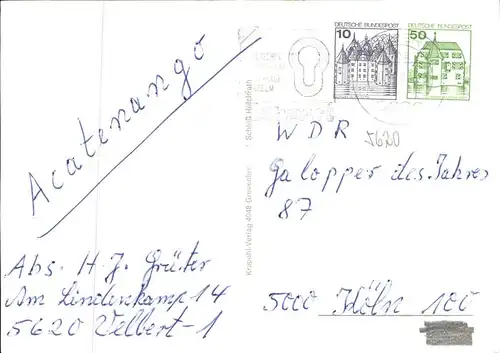 Acatenango
Abs. H. J. Grüter
Am Lindenkamp 14
5620 Velbert-1
Krapohl-Verlag 4048 Grevenbroich
Schloß Hülchrath
DEUTSCHE BUNDESPOST
10
DEUTSCHE BUNDESPOST
50
5620
WDR
Galopper des Jahres
87
5000 Köln 100